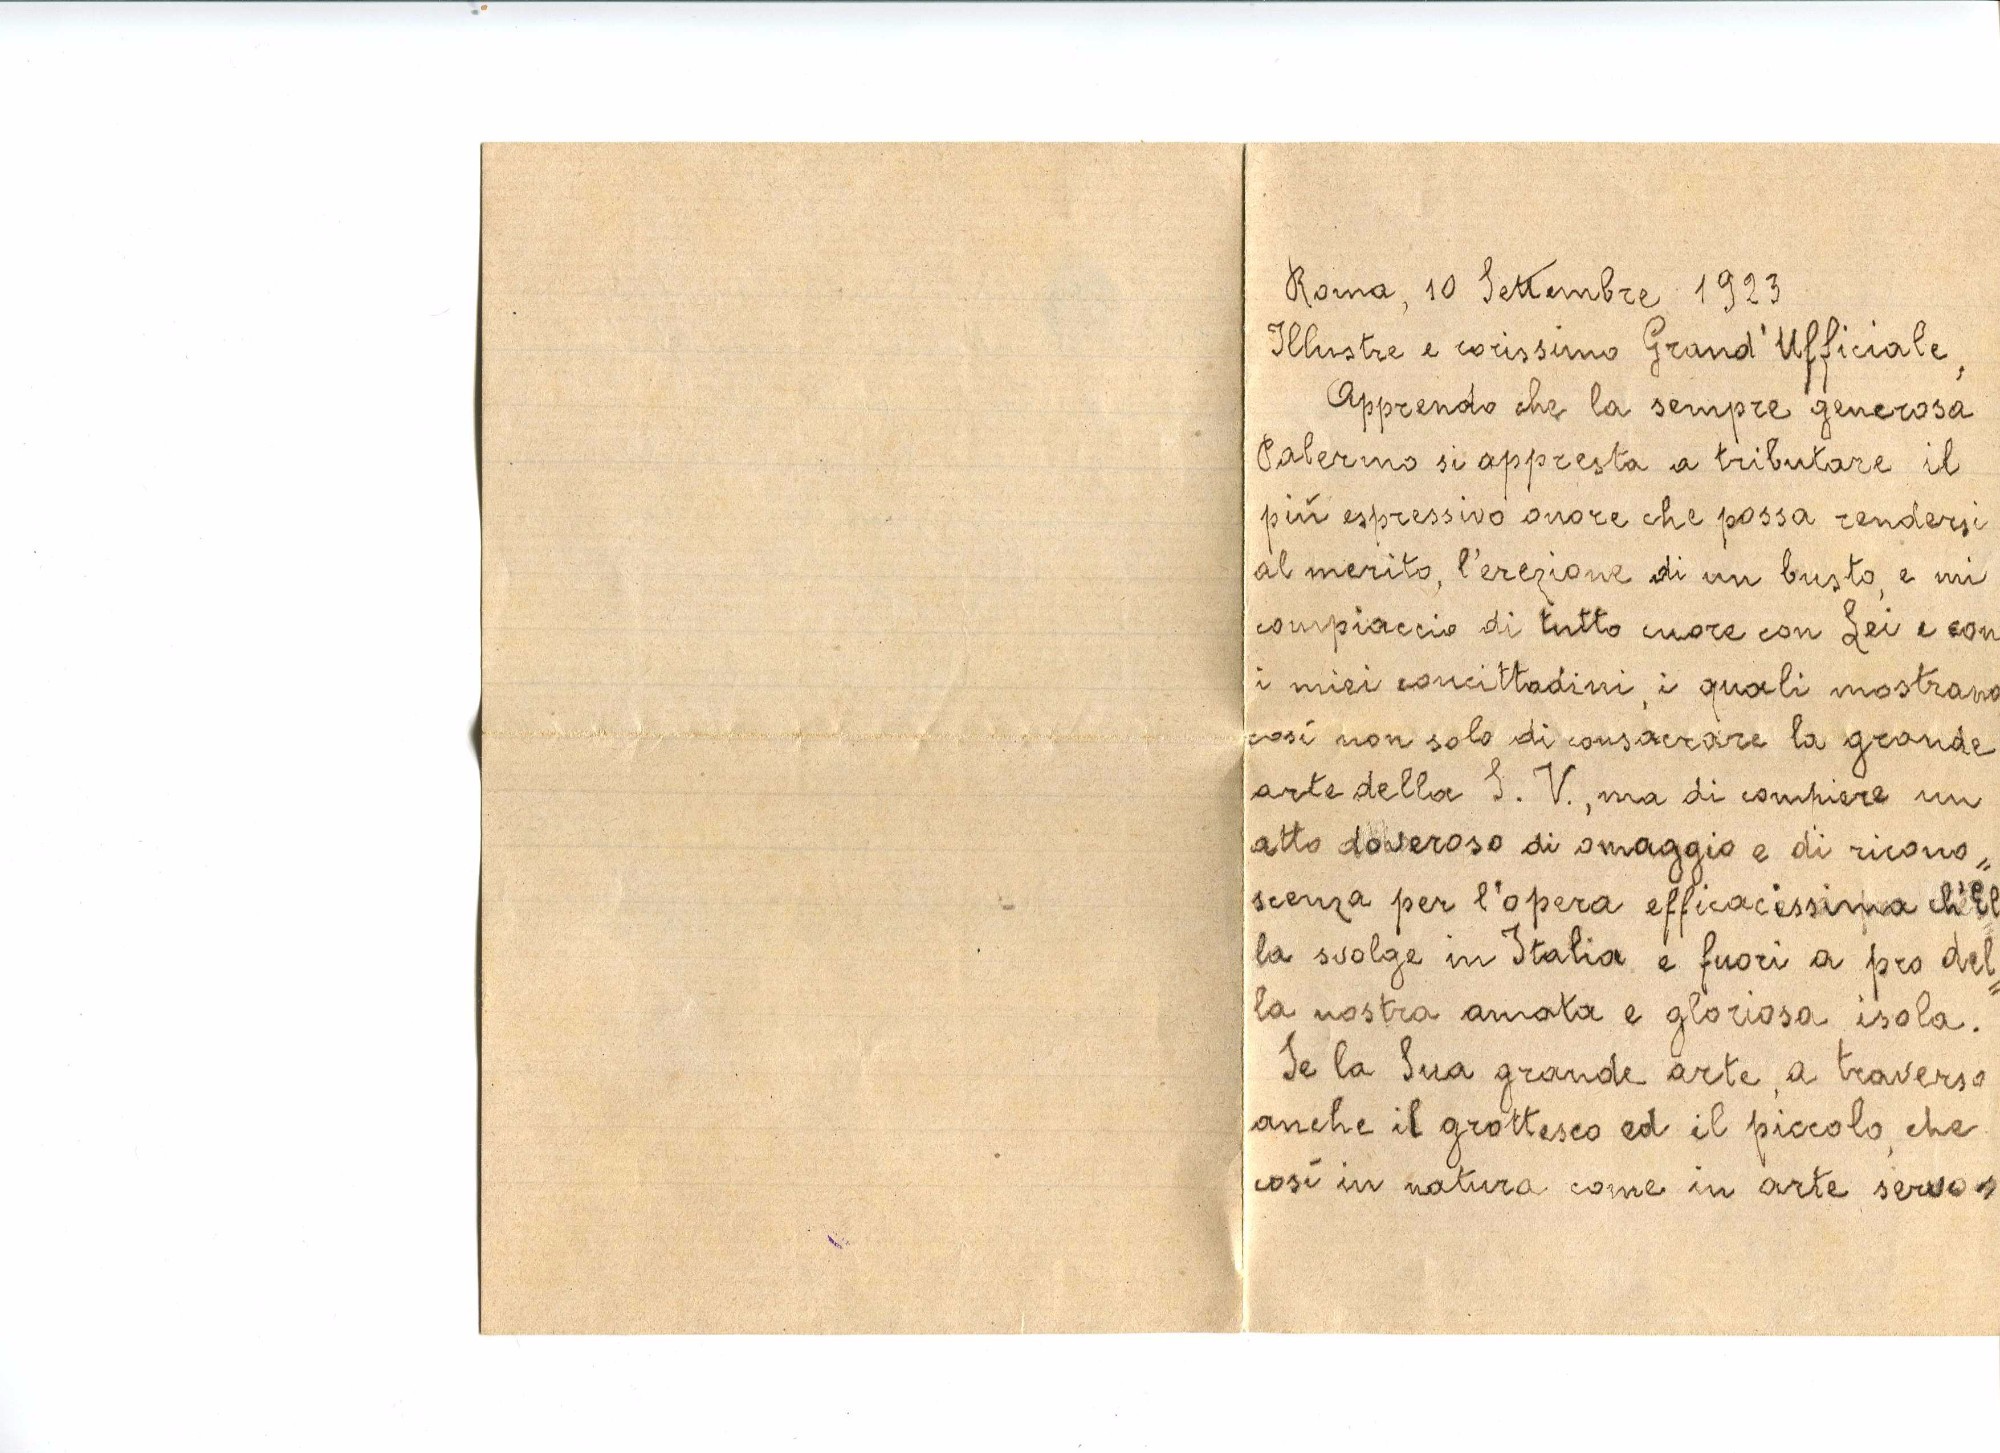 Roma, 10 Settembre 1923
Illustre e carissimo Grand'Ufficiale,
Apprendo che la sempre generosa
Palermo si appresta a tributare il
più espressivo onore che possa rendersi
al merito, l'erezione di un busto, e mi
compiaccio di tutto cuore con Lei e con
i miei concittadini, i quali mostrano
così non solo di consacrare la grande
arte della S. V., ma di compiere un
atto doveroso di omaggio e di ricono=
scenza per l'opera efficacissima ch'El
la svolge in Italia e fuori a pro del=
la nostra amata e gloriosa isola.
Se la Sua grande arte, a traverso
anche il grottesco ed il piccolo, che
così in natura come in arte servo=